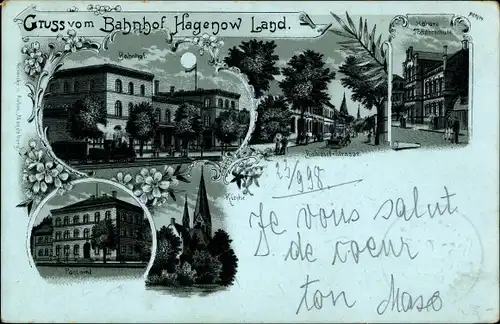 Gruss vom Bahnhof Hagenow Land.
Bahnhof
Höhere
Töchterschule
Bahnhof-Strasse
23/9 98.
Kirche
Postamt
Je vous salut
de coeur
ton